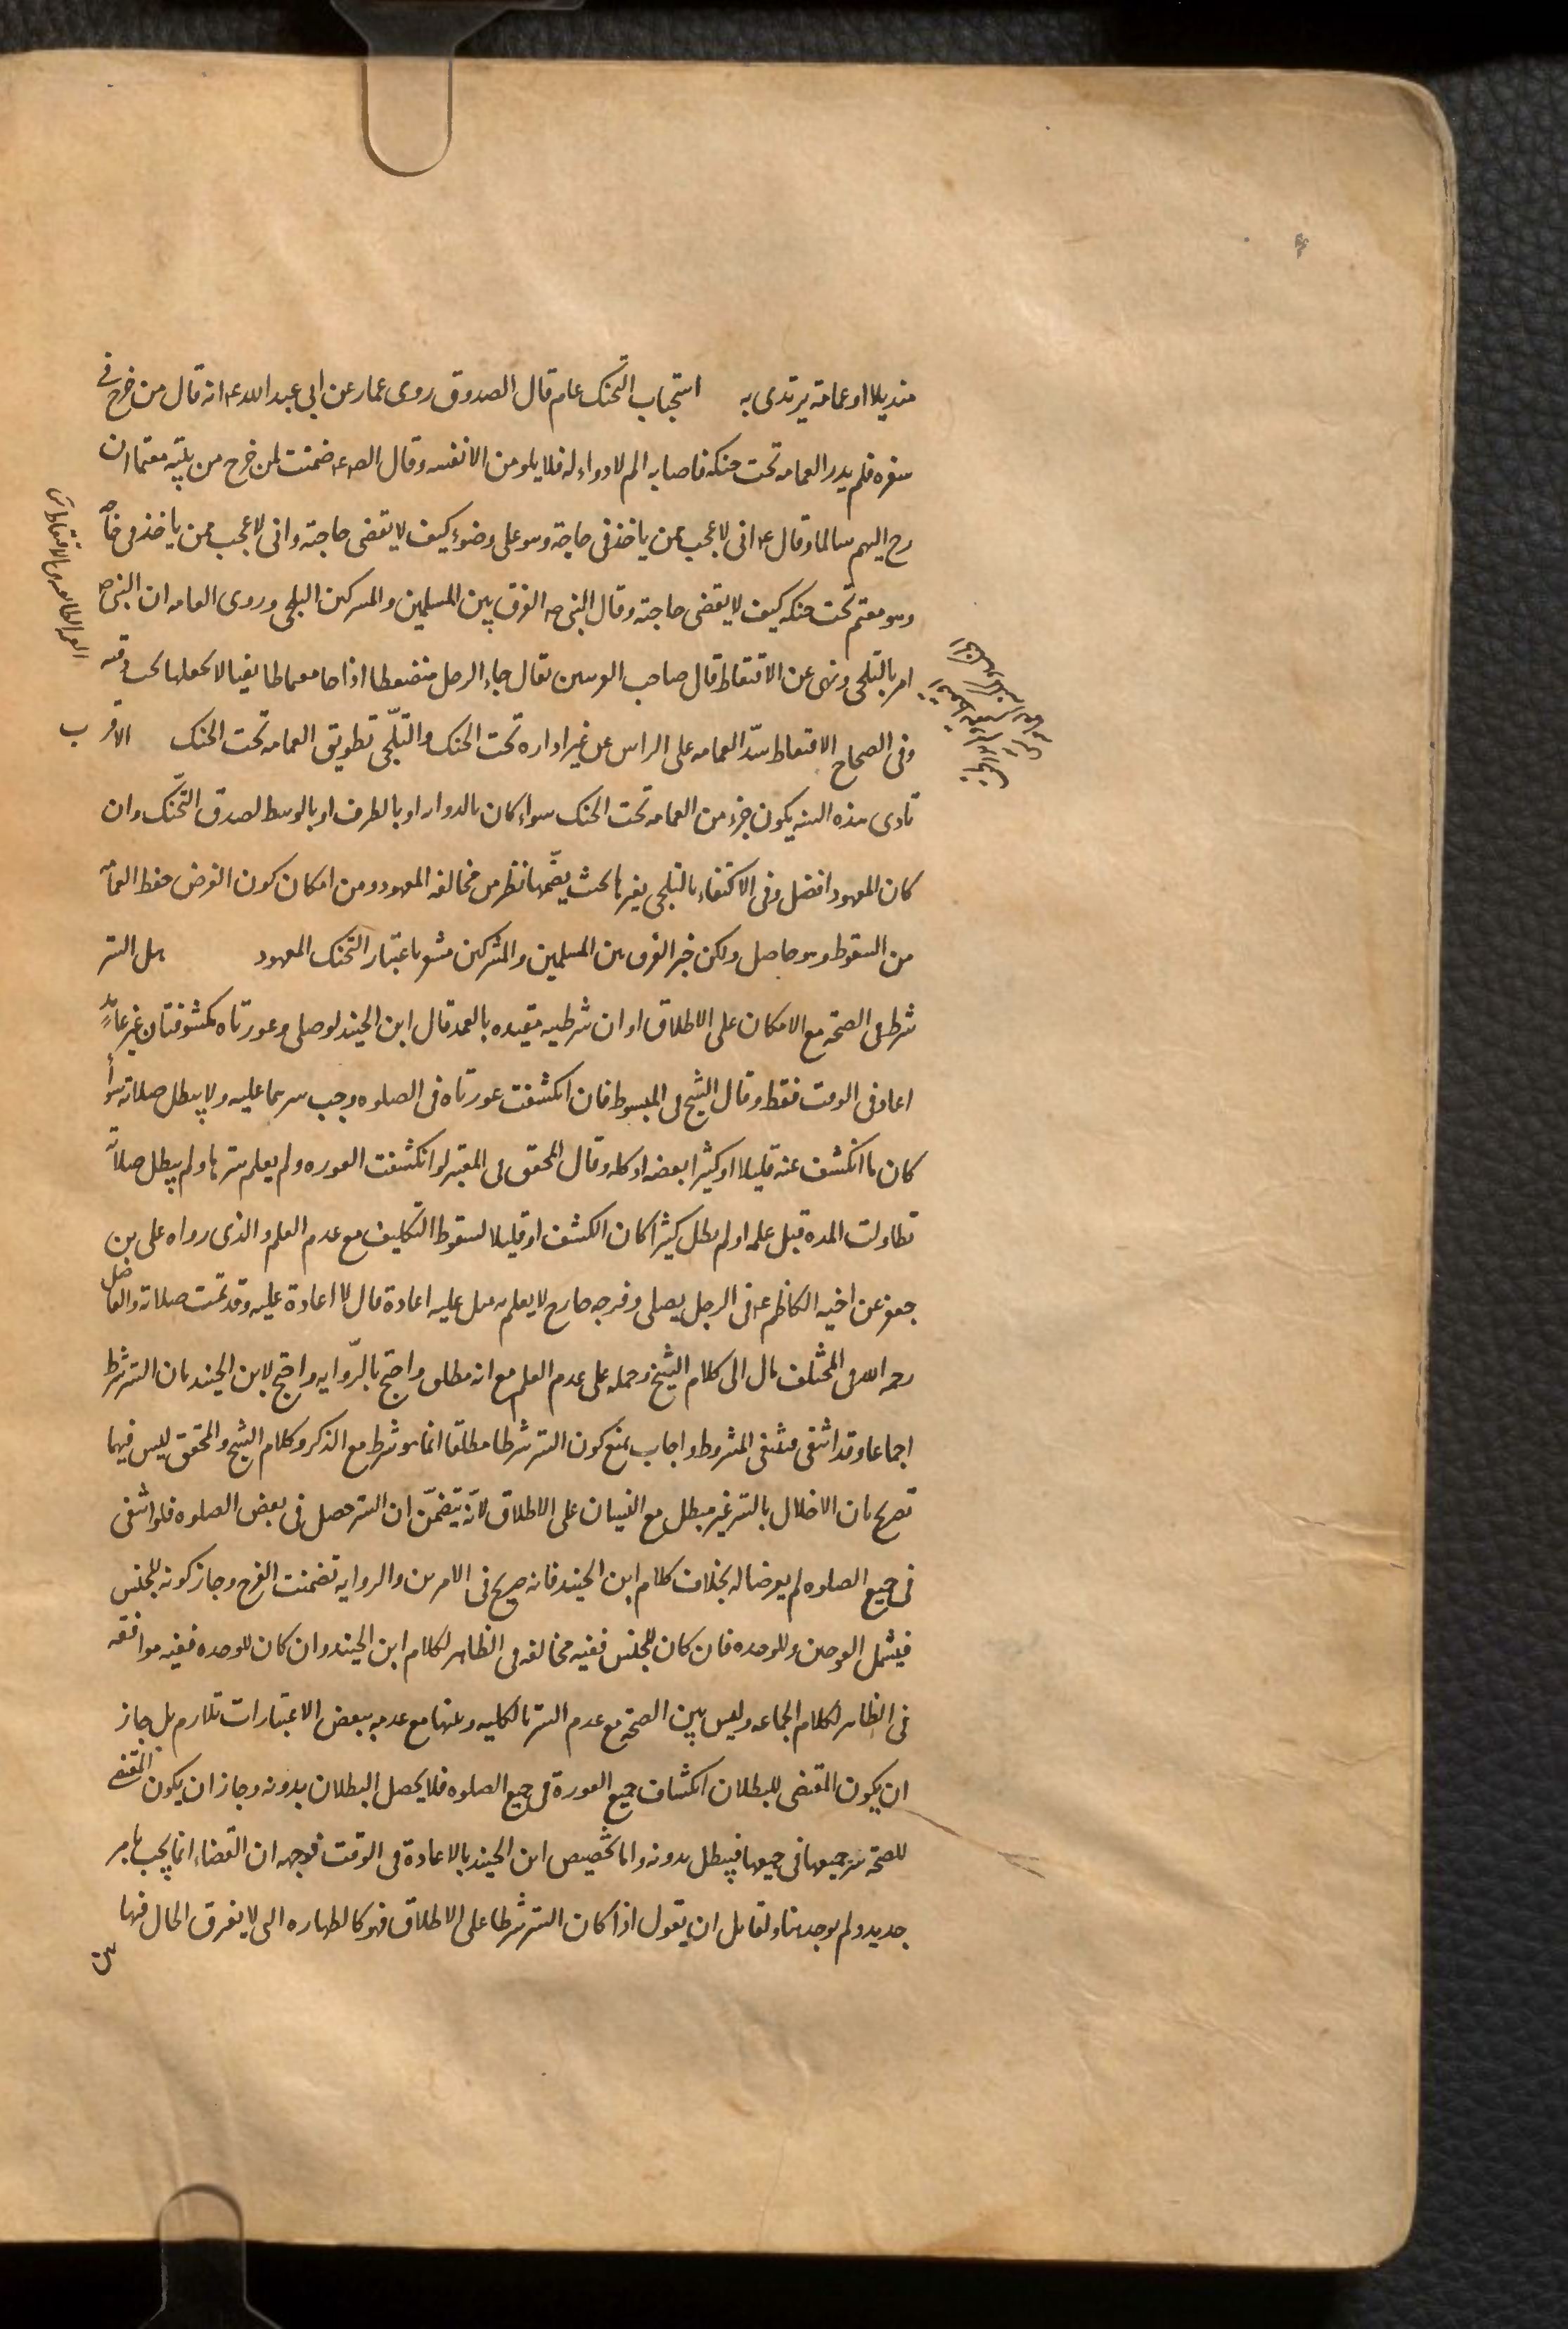 منديلا او عمامة يرتدى به استحباب التحنك عام قال الصدوق روى عمار عن ابى عبد الله ع انه قال من خرج فى
سفره فلم يدر العمامه تحت حنكه فاصابه الم لا دواء له فلا يلومن الا نفسه وقال الص ع ضمنت لمن خرج من بيته معتما ان
رح اليهم سالما وقال ع انى لاعجب ممن ياخذ فى حاجة وهو على وضوء كيف لا يقضى حاجته وانى لاعجب ممن ياخذ فى حاجة
وهو معتم تحت حنكه كيف لا يقضى حاجته وقال النبى ص الفرق بين المسلمين والمسركين التلحى وروى العامه ان النبى ص
امر بالتلحى ونهى عن الاقتعاط قال صاحب الغرسين يقال جاء الرجل مقتعطا اذا جا معمما طابقيا لا يجعلها تحت ذقنه
وفى الصحاح الاقتعاط شدّ العمامه على الراس عن غير اداره تحت الحنك والتلّحى تطويق العمامه تحت الحنك الاقرب
تادى هذه السنه يكون جزء من العمامه تحت الحنك سواء كان بالدواره او بالطرف او بالوسط لصدق التحنّك وان
كان المعهود افضل وفى الاكتفاء بالتلحى بغيرها بحث يضّمها نظر من مخالفه المعهود ومن امكان كون الغرض حفظ العمامه
من السقوط وهو حاصل ولكن خبر الفرق بين المسلمين والمشركين مشعر باعتبار التحنك المعهود هل الستر
شرط فى الصحة مع الامكان على الاطلاق او ان شرطيه مقيده بالعمد قال ابن الجنيد لو صلى وعورتاه مكشوفتان غير عامد
اعاد فى الوقت فقط وقال الشيخ فى المبسوط فان انكشفت عورتاه فى الصلوه وجب سترهما عليه ولا يبطل صلاته سواء
كان ما انكشف عنه قليلا او كثيرا بعضه او كله وقال المحقق فى المعتبر لو انكشفت العوره ولم يعلم سترها ولم يبطل صلاته
تطاولت المده قبل علمه او لم يطل كثيرا كان الكشف او قليلا لسقوط التكليف مع عدم العلم والذى رواه على بن
جعفر عن اخيه الكاظم ع فى الرجل يصلى وفرجه خارج لا يعلم به هل عليه اعادة قال لا اعادة عليه وقد تمت صلاته والفاضل
رحمه الله فى المختلف مال الى كلام الشيخ وحمله على عدم العلم مع انه مطلق واحتج بالرّوايه واحتج لابن الجنيد بان الستر شرط
اجماعا وقد انتفى فينتفى المشروط واجاب بمنع كون الستر شرطا مطلقا انما هو شرط مع الذكر وكلام الشيخ والمحقق ليس فيهما
تصريح بان الاخلال بالستر غير مبطل مع النسيان على الاطلاق لانّه يتضمّن ان الستر حصل فى بعض الصلوه فلو انتفى
فى جميع الصلوه لم يعرضا له بخلاف كلام ابن الجنيد فانه صريح فى الامرين والروايه تضمنت الفرج وجاز كونه للجنس
فيشمل العورتين وللوحده فان كان للجنس ففيه مخالفه فى الظاهر لكلام ابن الجنيد وان كان للوحده ففيه موافقه
فى الظاهر لكلام الجماعه وليس بين الصحة مع عدم الستر بالكليه وبينها مع عدمه ببعض الاعتبارات تلازم بل جاز
ان يكون المقتضى للبطلان انكشاف جميع العورة فى جميع الصلوه فلا يحصل البطلان بدونه وجاز ان يكون المقتضى
للصحة ستر جميعها فى جميعها فيبطل بدونه واما تخصيص ابن الجنيد بالاعادة فى الوقت فوجهه ان القضاء انما يجب بامر
جديد ولم يوجد هنا ولقائل ان يقول اذا كان الستر شرطا على الاطلاق فهو كالطهاره التى لا يفرق الحال فيها
بين